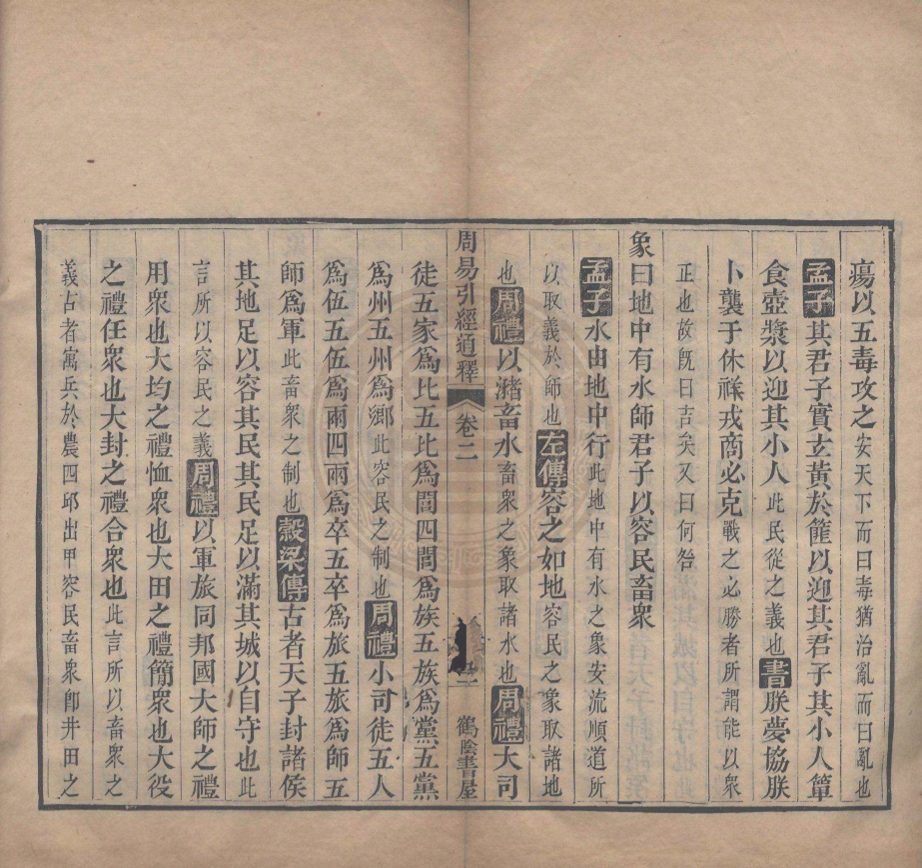 瘍以五毒攻之安天下而曰毒猶治亂而曰亂也
孟子其君子實玄黃於篚以迎其君子其小人簞
食壺漿以迎其小人此民從之義也書朕夢協朕
卜襲于休祥戎商必克戰之必勝者所謂能以衆
正也故旣曰吉矣又曰何咎
象曰地中有水師君子以容民畜衆
孟子水由地中行此地中有水之象安流順道所
以取義於師也左傳容之如地容民之象取諸地
也周禮以瀦畜水畜衆之象取諸水也周禮大司
周易引經通釋 卷二 鶴陰書屋
徒五家爲比五比爲閭四閭爲族五族爲黨五黨
爲州五州爲鄉此容民之制也周禮小司徒五人
爲伍五伍爲兩四兩爲卒五卒爲旅五旅爲師五
師爲軍此畜衆之制也穀梁傳古者天子封諸侯
其地足以容其民其民足以滿其城以自守也此
言所以容民之義周禮以軍旅同邦國大師之禮
用衆也大均之禮恤衆也大田之禮簡衆也大役
之禮任衆也大封之禮合衆也此言所以畜衆之
義古者寓兵於農四邱出甲容民畜衆卽井田之